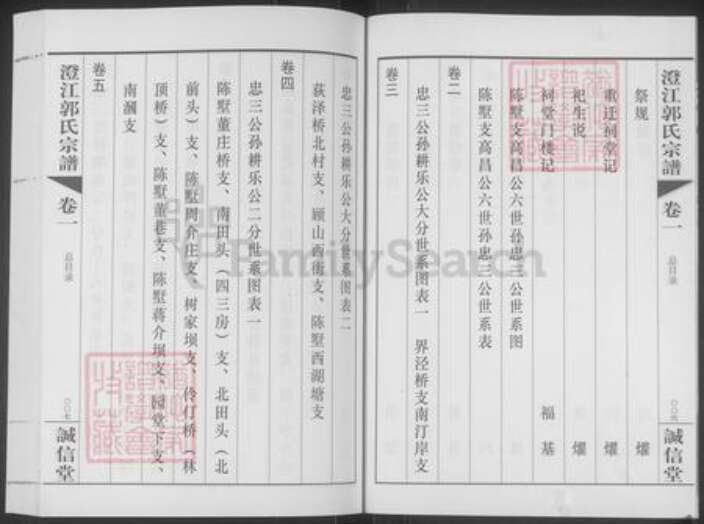 澄江郭氏宗譜
卷一
总目录
〇〇六
誠信堂
祭规
燿
重迁祠堂记
燿
祀生说
燿
祠堂门楼记
福基
陈墅支高昌公六世孙忠三公世系图
陈墅支高昌公六世孙忠三公世系表
卷二
忠三公孙耕乐公大分世系图表一 界泾桥支南汀岸支
卷三
忠三公孙耕乐公大分世系图表二
荻泽桥北村支、顾山西街支、陈墅西湖塘支
卷四
忠三公孙耕乐公二分世系图表一
陈墅董庄桥支、南田头（四三房）支、北田头（北
前头）支、陈墅周介庄支、树家坝支、伶仃桥（林
顶桥）支、陈墅董巷支、陈墅蒋介坝支、园堂下支、
南漍支
卷五
澄江郭氏宗譜
卷一
总目录
〇〇七
誠信堂
FamilySearch